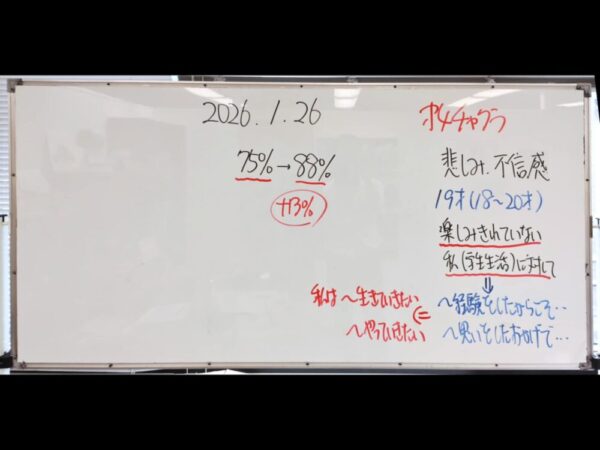 2026.1.26
75%→88%
+13%
第4チャクラ
悲しみ、不信感
19才(18～20才)
楽しみきれていない
私(学生生活)に対して
⇓
～経験をしたからこそ…
～思いをしたおかげで…
⇐
私は～生きていきたい
～やっていきたい